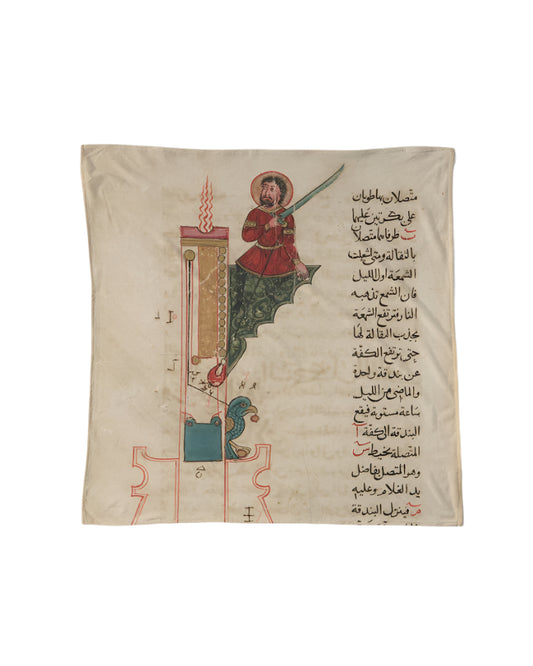 متصلان بها طويان
على بكرتين عليهما
طرفاهما متصلان
بالثقالة ومتى اشعلت
الشمعة اول الليل
فان الشمع تذهبه
النار فترتفع الشمعة
بجذب الثقالة لها
حتى ترتفع الكفة
عن بندقة واحدة
والماضى من الليل
ساعة مستوية فيقع
البندقة الى الكفة
المتصلة بخيط س
وهو المتصل بفاضل
يد الغلام وعليه
فينزل البندقة